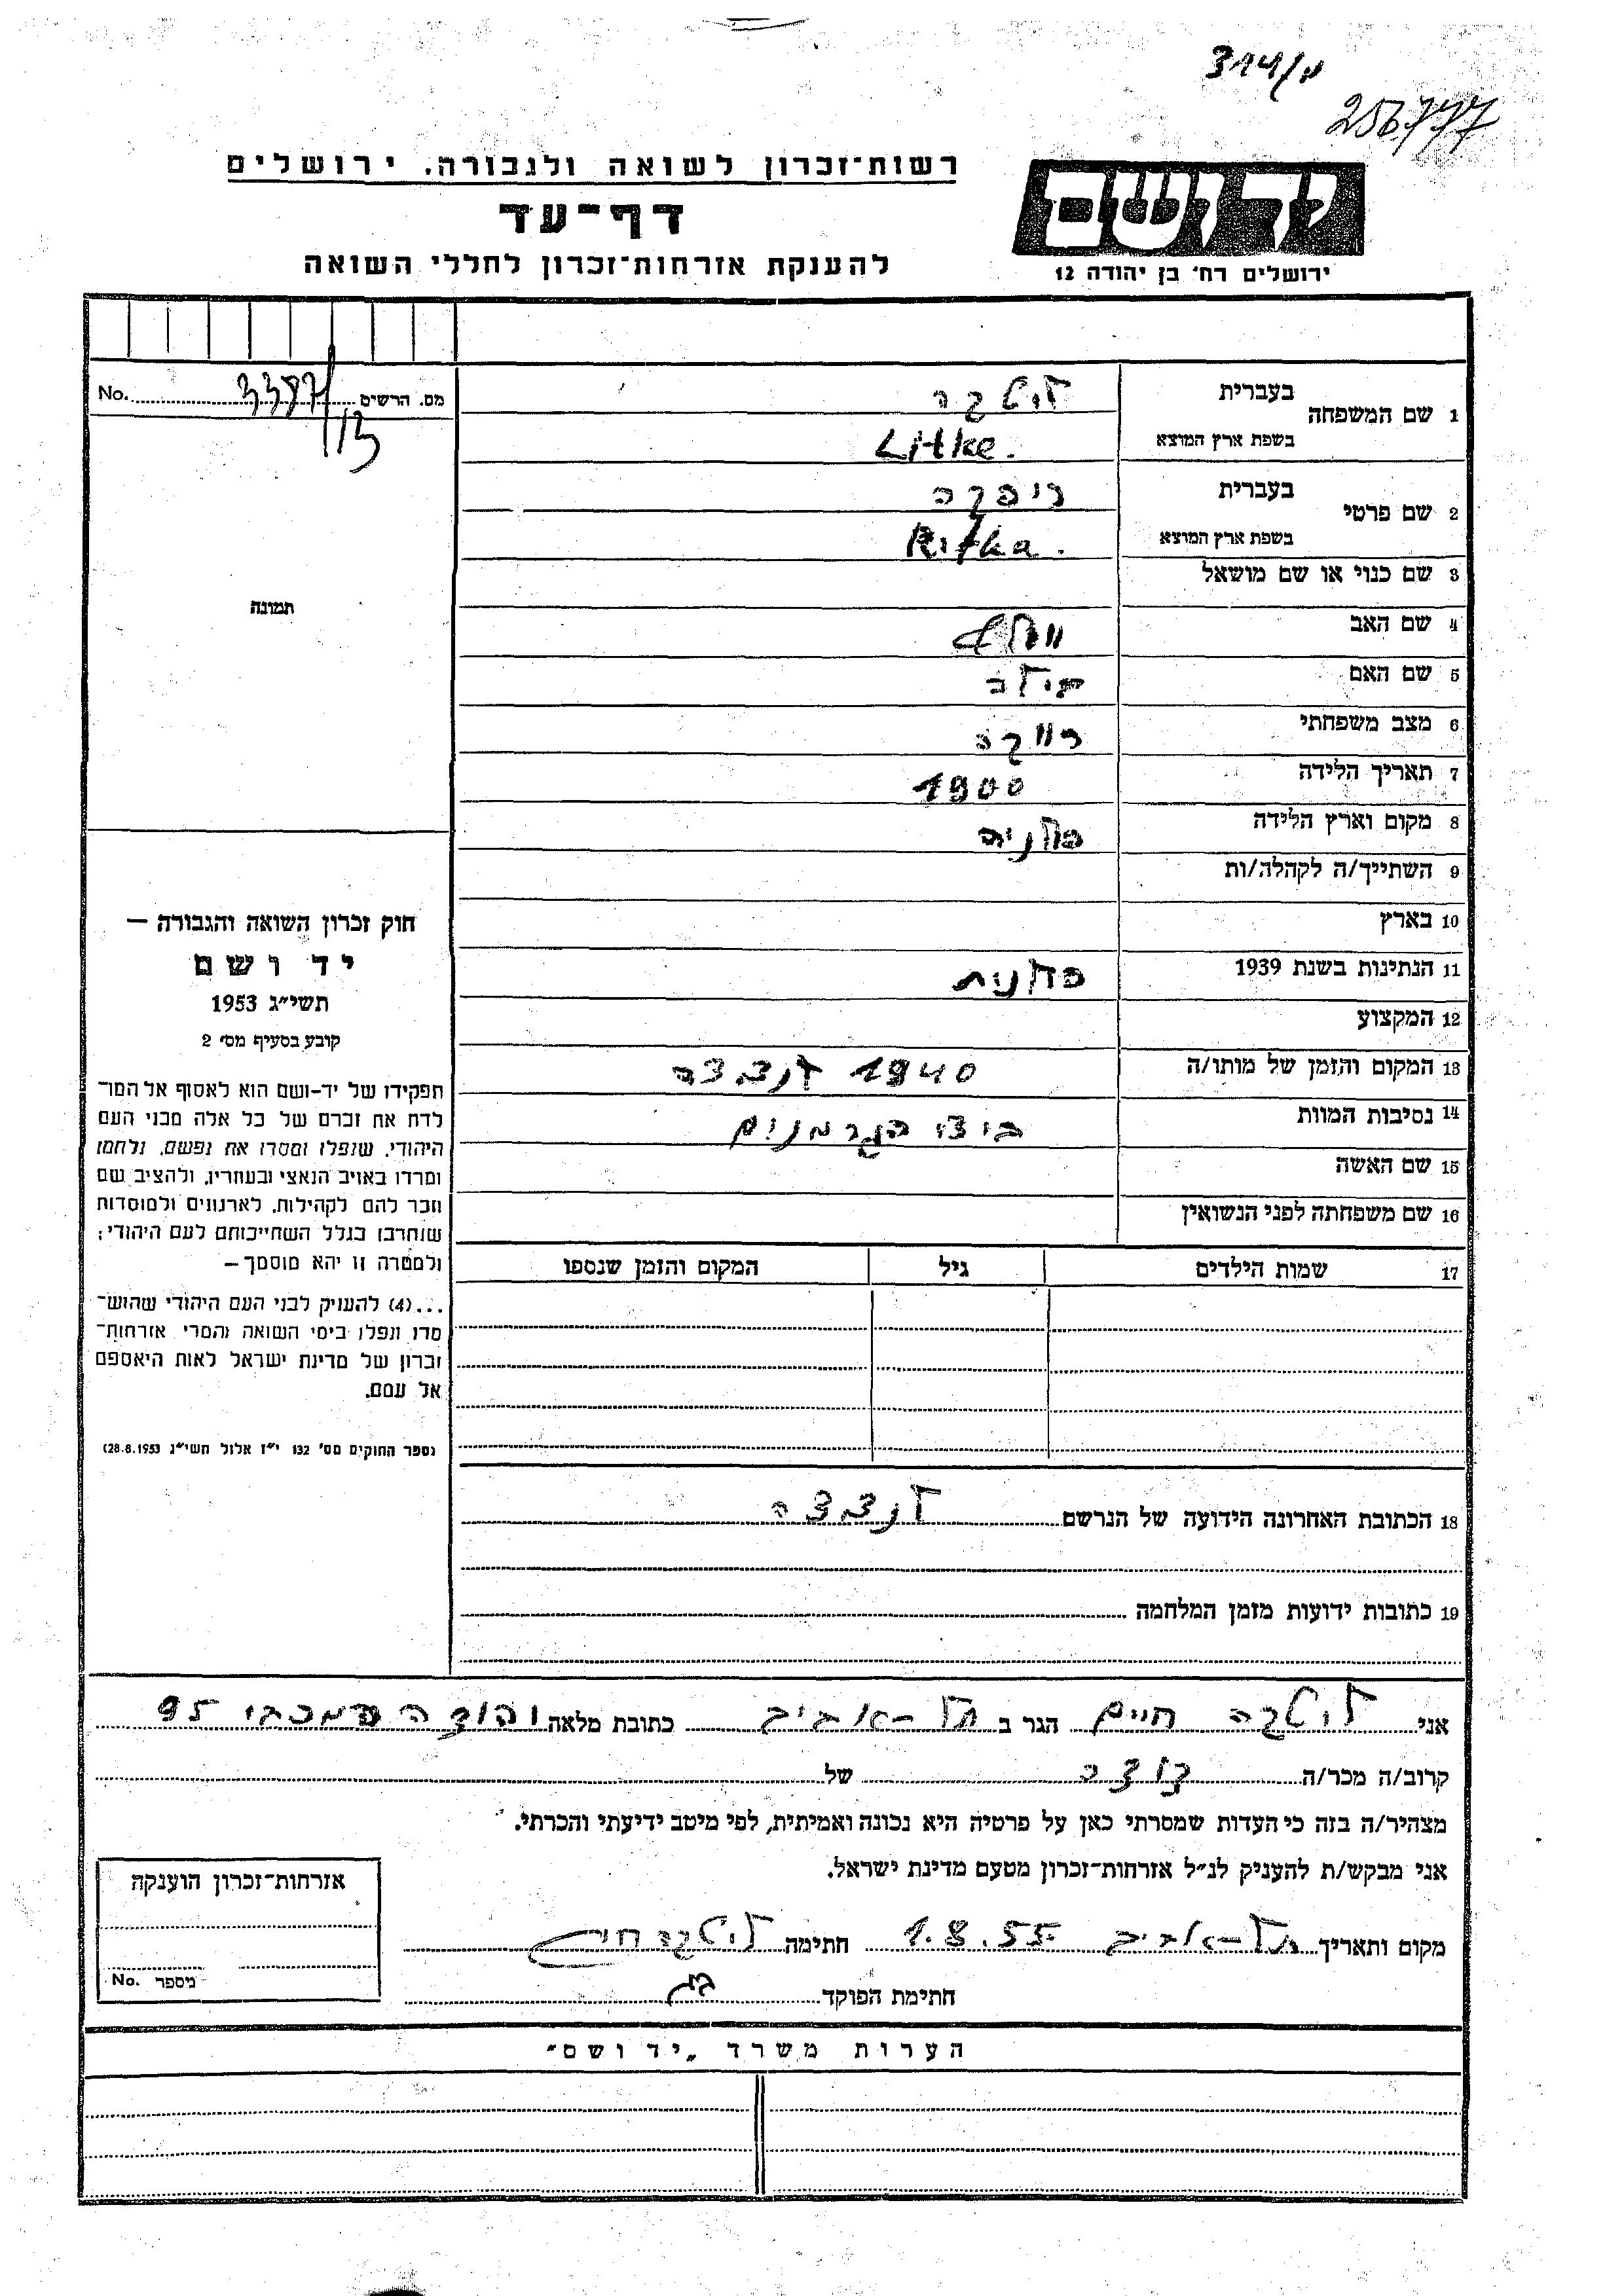 256777
רשות־זכרון לשואה ולגבורה. ירושלים
דף־עד
להענקת אזרחות־זכרון לחללי השואה
ידושם
ירושלים רח' בן יהודה 12
מס. הרשים No.
1 שם המשפחה בעברית ליטקה
בשפת ארץ המוצא Litke.
2 שם פרטי בעברית ריפקה
בשפת ארץ המוצא Rifka.
3 שם כנוי או שם מושאל
4 שם האב
5 שם האם
6 מצב משפחתי רווקה
7 תאריך הלידה 1900
8 מקום וארץ הלידה פולניה
9 השתייך/ה לקהלה/ות
10 בארץ
11 הנתינות בשנת 1939 פולנית
12 המקצוע
13 המקום והזמן של מותו/ה 1940 לנצצה
14 נסיבות המוות בידי הגרמנים
15 שם האשה
16 שם משפחתה לפני הנשואין
17 שמות הילדים גיל המקום והזמן שנספו
18 הכתובת האחרונה הידועה של הנרשם לנצצה
19 כתובות ידועות מזמן המלחמה
תמונה
חוק זכרון השואה והגבורה —
יד ושם
תשי״ג 1953
קובע בסעיף מס׳ 2
תפקידו של יד-ושם הוא לאסוף אל המו־
לדת את זכרם של כל אלה מבני העם
היהודי, שנפלו ומסרו את נפשם, נלחמו
ומרדו באויב הנאצי ובעוזריו, ולהציב שם
וזכר להם לקהילות, לארגונים ולמוסדות
שנחרבו בגלל השתייכותם לעם היהודי;
ולמטרה זו יהא מוסמך —
...(4) להעניק לבני העם היהודי שהוש־
מדו ונפלו בימי השואה והמרי אזרחות־
זכרון של מדינת ישראל לאות היאספם
אל עמם.
(ספר החוקים מס׳ 132 י״ז אלול תשי״ג 28.8.1953)
אני ליטקה חיים הגר ב תל-אביב כתובת מלאה יהודה המכבי 95
קרוב/ה מכר/ה דודה של
מצהיר/ה בזה כי העדות שמסרתי כאן על פרטיה היא נכונה ואמיתית, לפי מיטב ידיעתי והכרתי.
אני מבקש/ת להעניק לנ״ל אזרחות־זכרון מטעם מדינת ישראל.
מקום ותאריך תל-אביב 1.8.55 חתימה ליטקה חיים
חתימת הפוקד
אזרחות־זכרון הוענקה
מספר No.
הערות משרד „יד ושם״